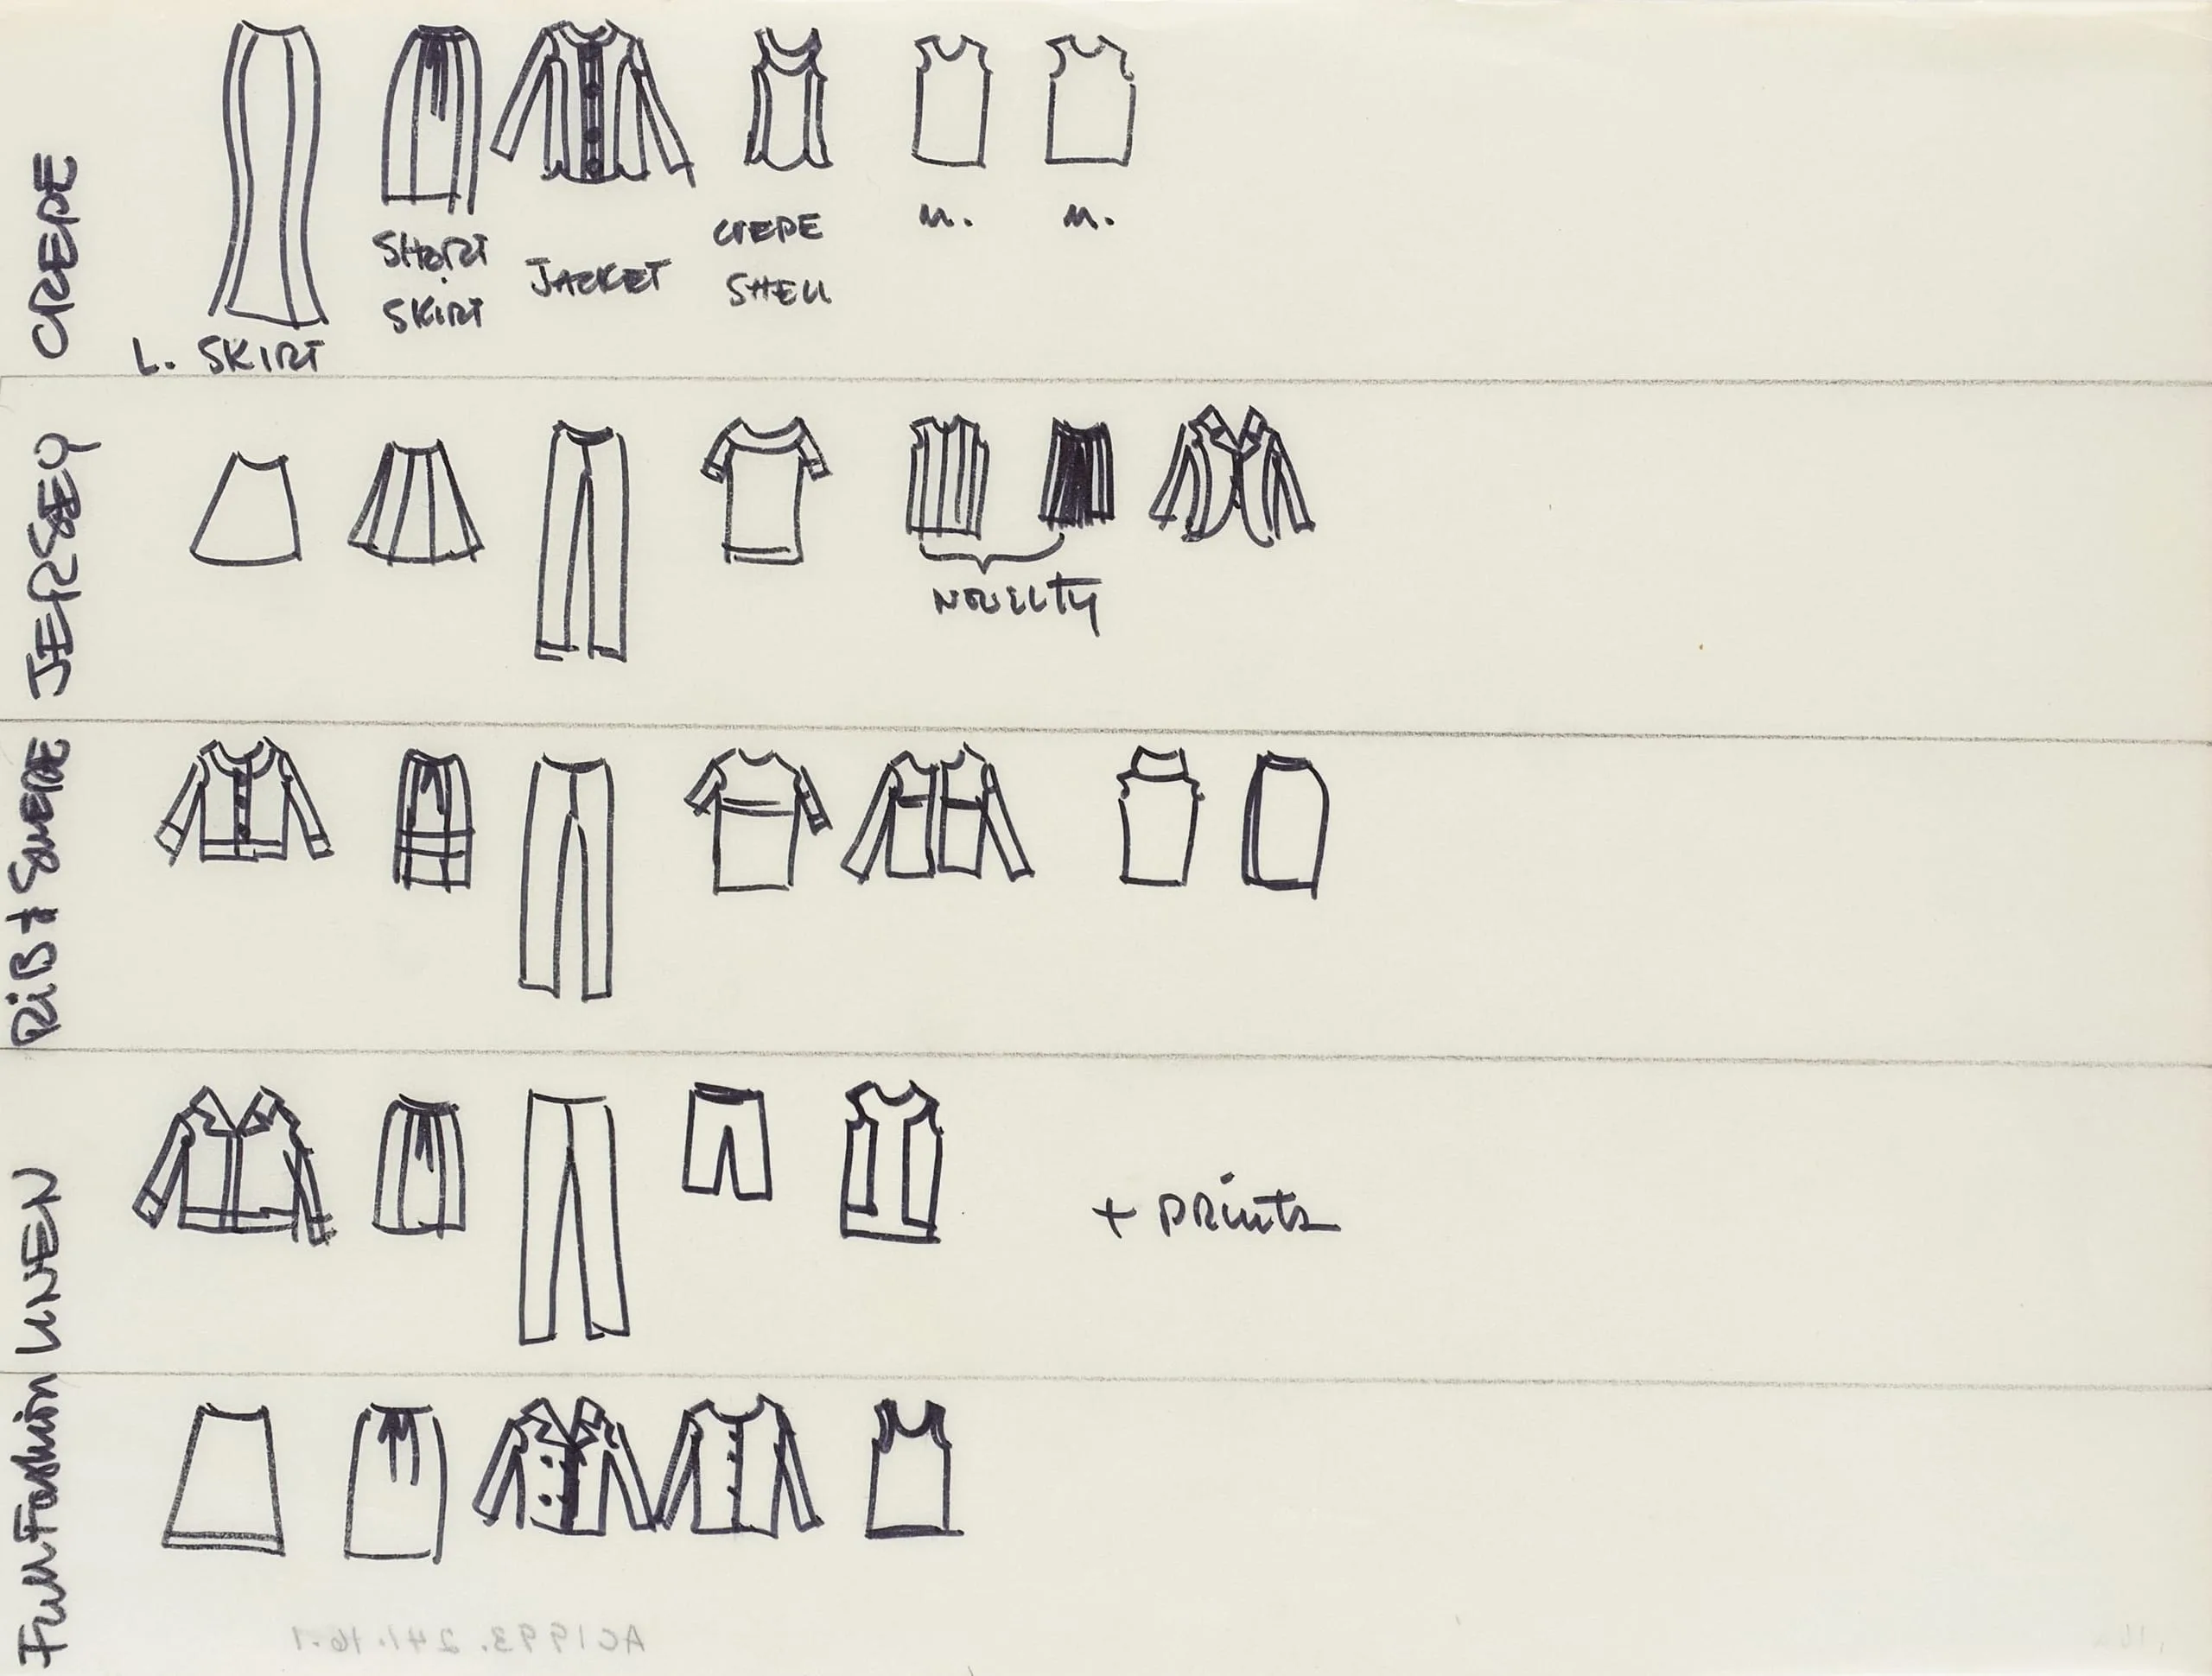 CREPE
L. SKIRT
SHORT
SKIRT
JACKET
CREPE
SHELL
M.
M.
JERSEY
NOVELTY
RiB +
LINEN
+ PRints
Fun Fashion
AC1993.241.16.1